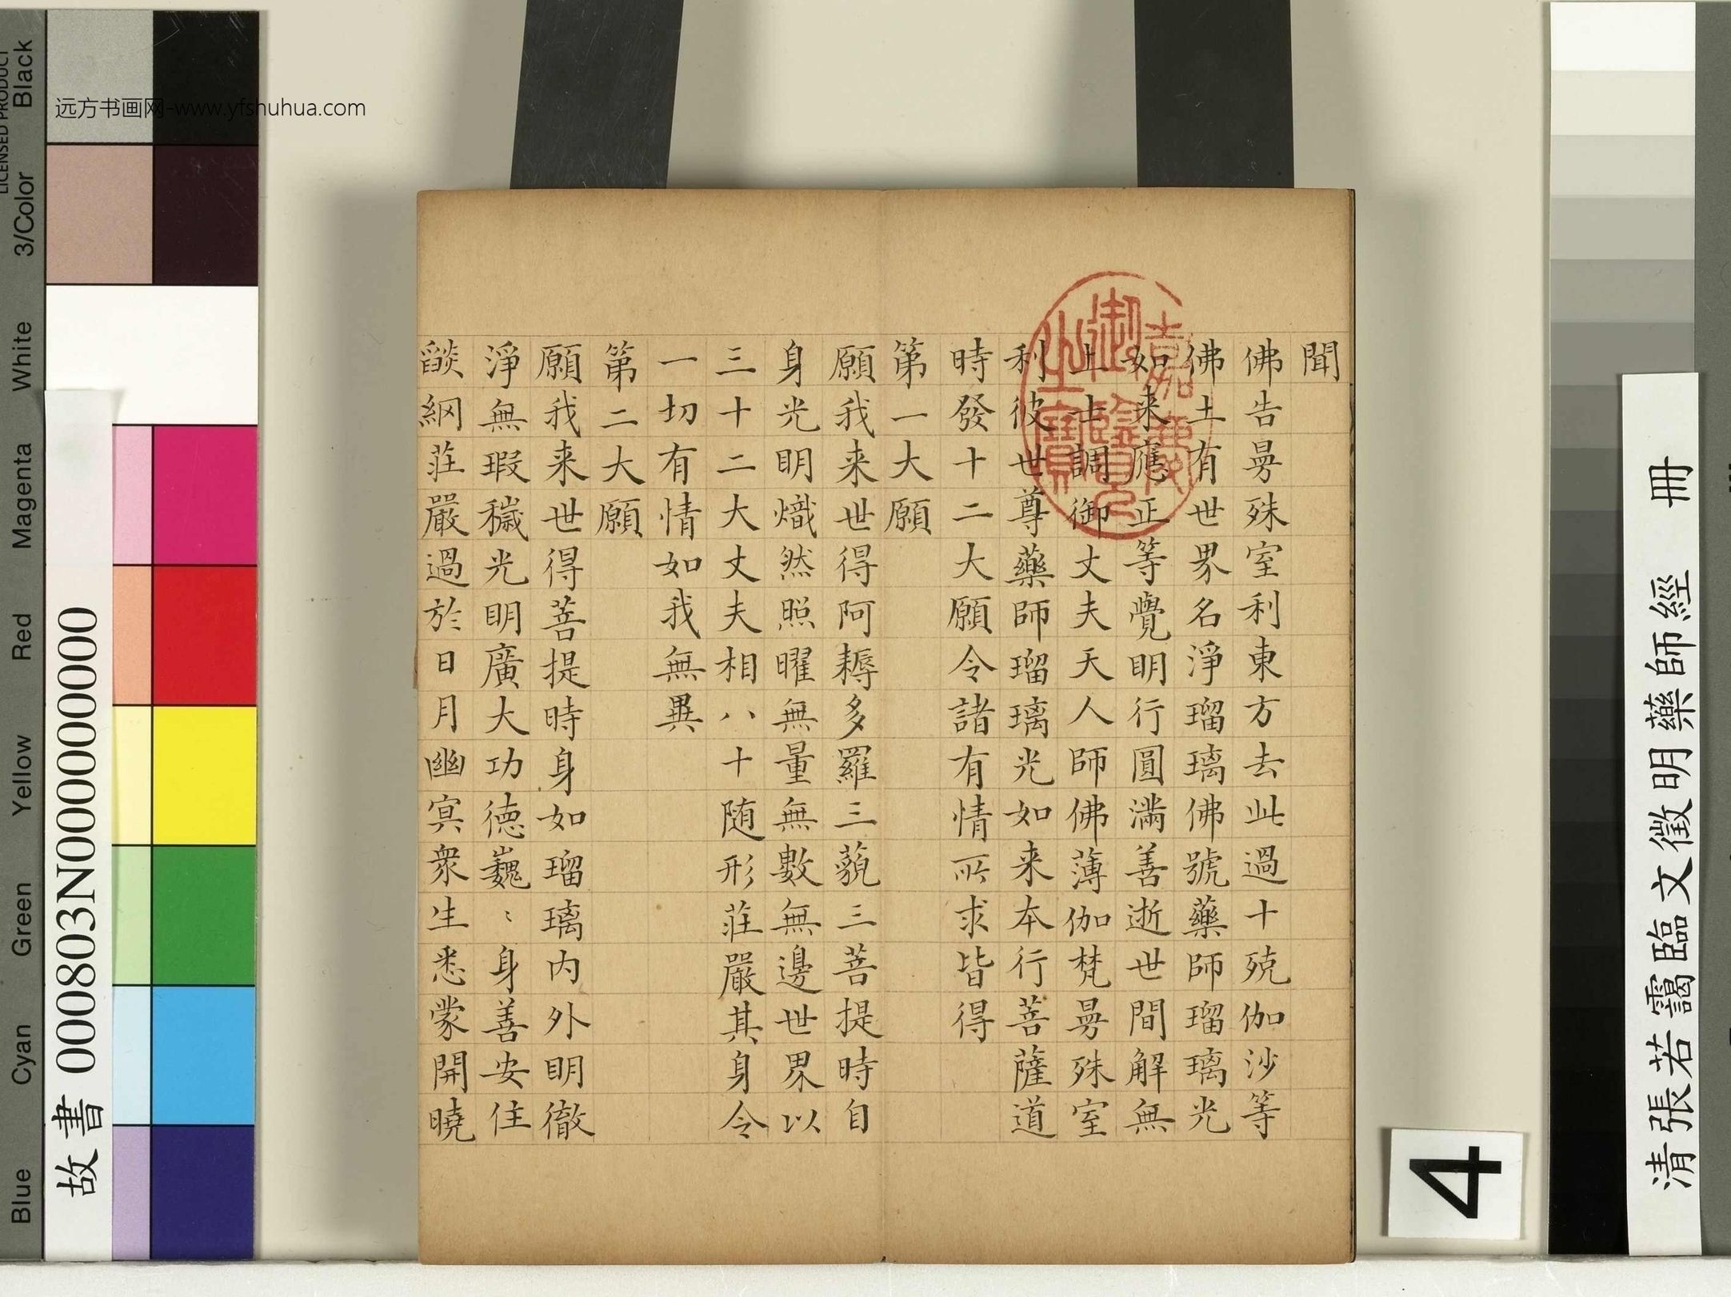 聞
佛告曼殊室利東方去此過十殑伽沙等
佛土有世界名淨瑠璃佛號藥師瑠璃光
如来應正等覺明行圓滿善逝世間解無
上士調御丈夫天人師佛薄伽梵曼殊室
利彼世尊藥師瑠璃光如来本行菩薩道
時發十二大願令諸有情所求皆得
第一大願
願我来世得阿耨多羅三藐三菩提時自
身光明熾然照曜無量無數無邊世界以
三十二大丈夫相八十随形莊嚴其身令
一切有情如我無異
第二大願
願我来世得菩提時身如瑠璃内外明徹
淨無瑕穢光明廣大功德巍〻身善安住
燄網莊嚴過於日月幽冥衆生悉蒙開曉
嘉慶御覽之寶
清張若靄臨文徵明藥師經 冊
4
故書 000803N000000000
远方书画网-www.yfshuhua.com
LICENSED PRODUCT
Black
3/Color
White
Magenta
Red
Yellow
Green
Cyan
Blue